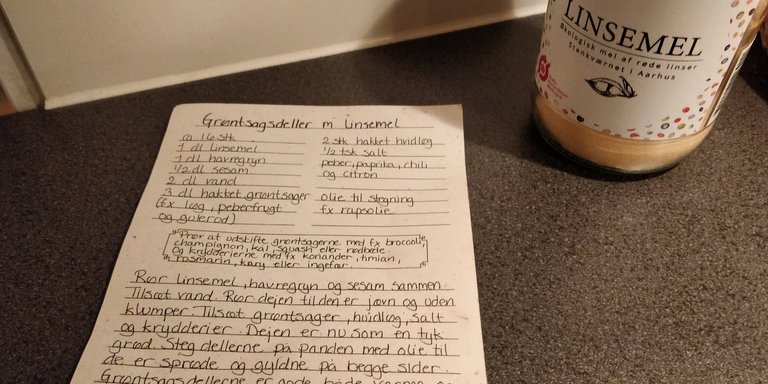 LINSEMEL
Økologisk mel af røde linser
Stenkværnet i Aarhus
Grøntsagsdeller m. linsemel
ca 16 stk
1 dl linsemel
1 dl havregryn
1/2 dl sesam
2 dl vand
3 dl hakket grøntsager
(fx løg, peberfrugt
og gulerod)
2 stk hakket hvidløg
1/2 tsk salt
peber, paprika, chili
og citron
olie til stegning
fx rapsolie
Prøv at udskifte grøntsagerne med fx broccoli,
champignon, kål, squash eller rødbede.
Og krydderierne med fx koriander, timian,
rosmarin, karry eller ingefær.
Rør linsemel, havregryn og sesam sammen.
Tilsæt vand. Rør dejen til den er jævn og uden
klumper. Tilsæt grøntsager, hvidløg, salt
og krydderier. Dejen er nu som en tyk
grød. Steg dellerne på panden med olie til
de er sprøde og gyldne på begge sider.
Grøntsagsdellerne er gode både varme og